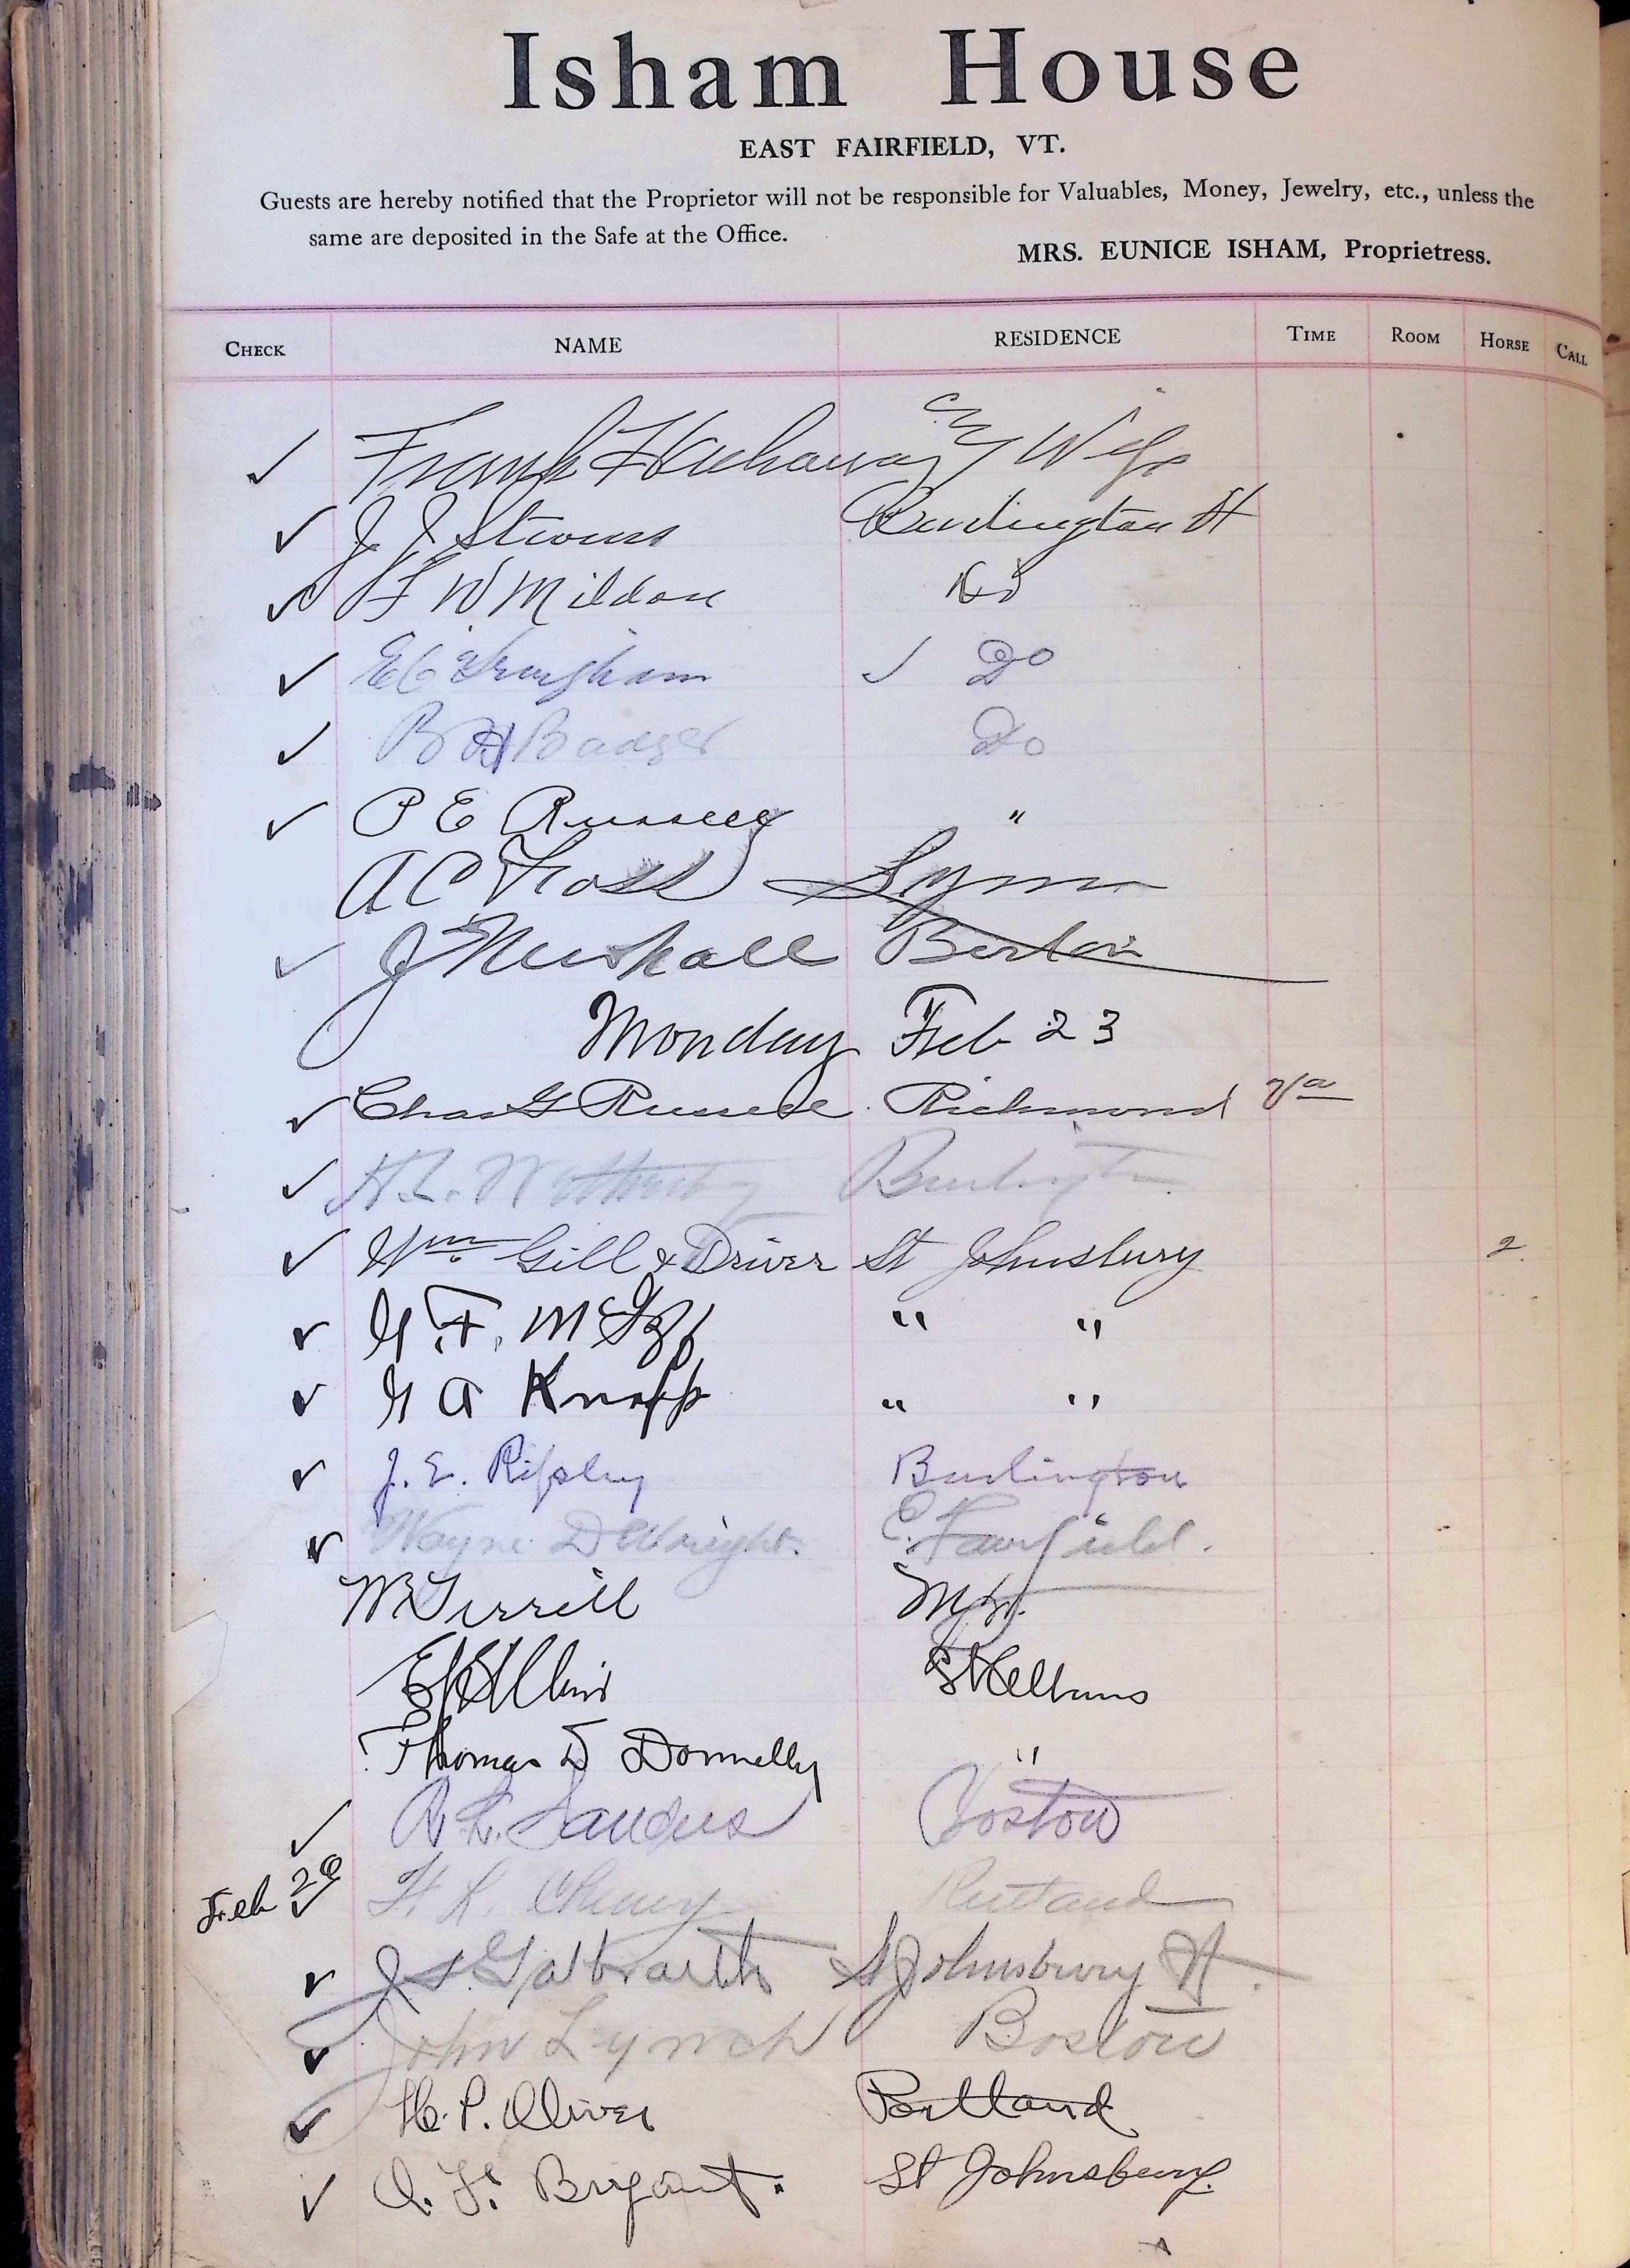 Isham House
EAST FAIRFIELD, VT.
Guests are hereby notified that the Proprietor will not be responsible for Valuables, Money, Jewelry, etc., unless the
same are deposited in the Safe at the Office.
MRS. EUNICE ISHAM, Proprietress.
CHECK NAME RESIDENCE TIME ROOM HORSE CALL
✓ Frank Hathaway & Wife
✓ J J Stevens Burlington Vt
✓ W
✓ E C ✓ Do
✓ B H Badger Do
✓ P E Russell "
A C Lynn
✓ J Barton
Monday Feb 23
✓ Chas G Russell Richmond Va
✓ H. L. Burlington
✓ Wm. Gill & Driver St Johnsbury 2
✓ G. F. " "
✓ G A Knapp " "
✓ J. E. Ripley Burlington
✓ Wayne D Wright. E. Fairfield.
W Terrill
St Albans
Thomas D Donnelly "
✓ R. L. Sanders Boston
Feb 29 ✓ H. L. Cheney Rutland
✓ J S Galbraith St Johnsbury Vt.
✓ John Lynch Boston
✓ H. P. Oliver Portland
✓ Bryant. St Johnsbury.